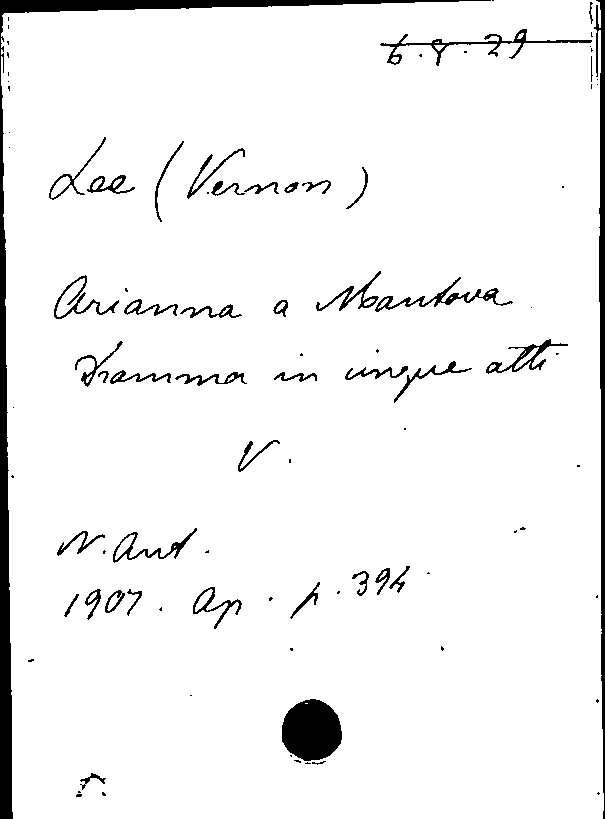 6.8.29
Lee (Vernon)
Arianna a Mantova
Dramma in cinque atti
V.
N. Ant.
1907. Ap. p. 394